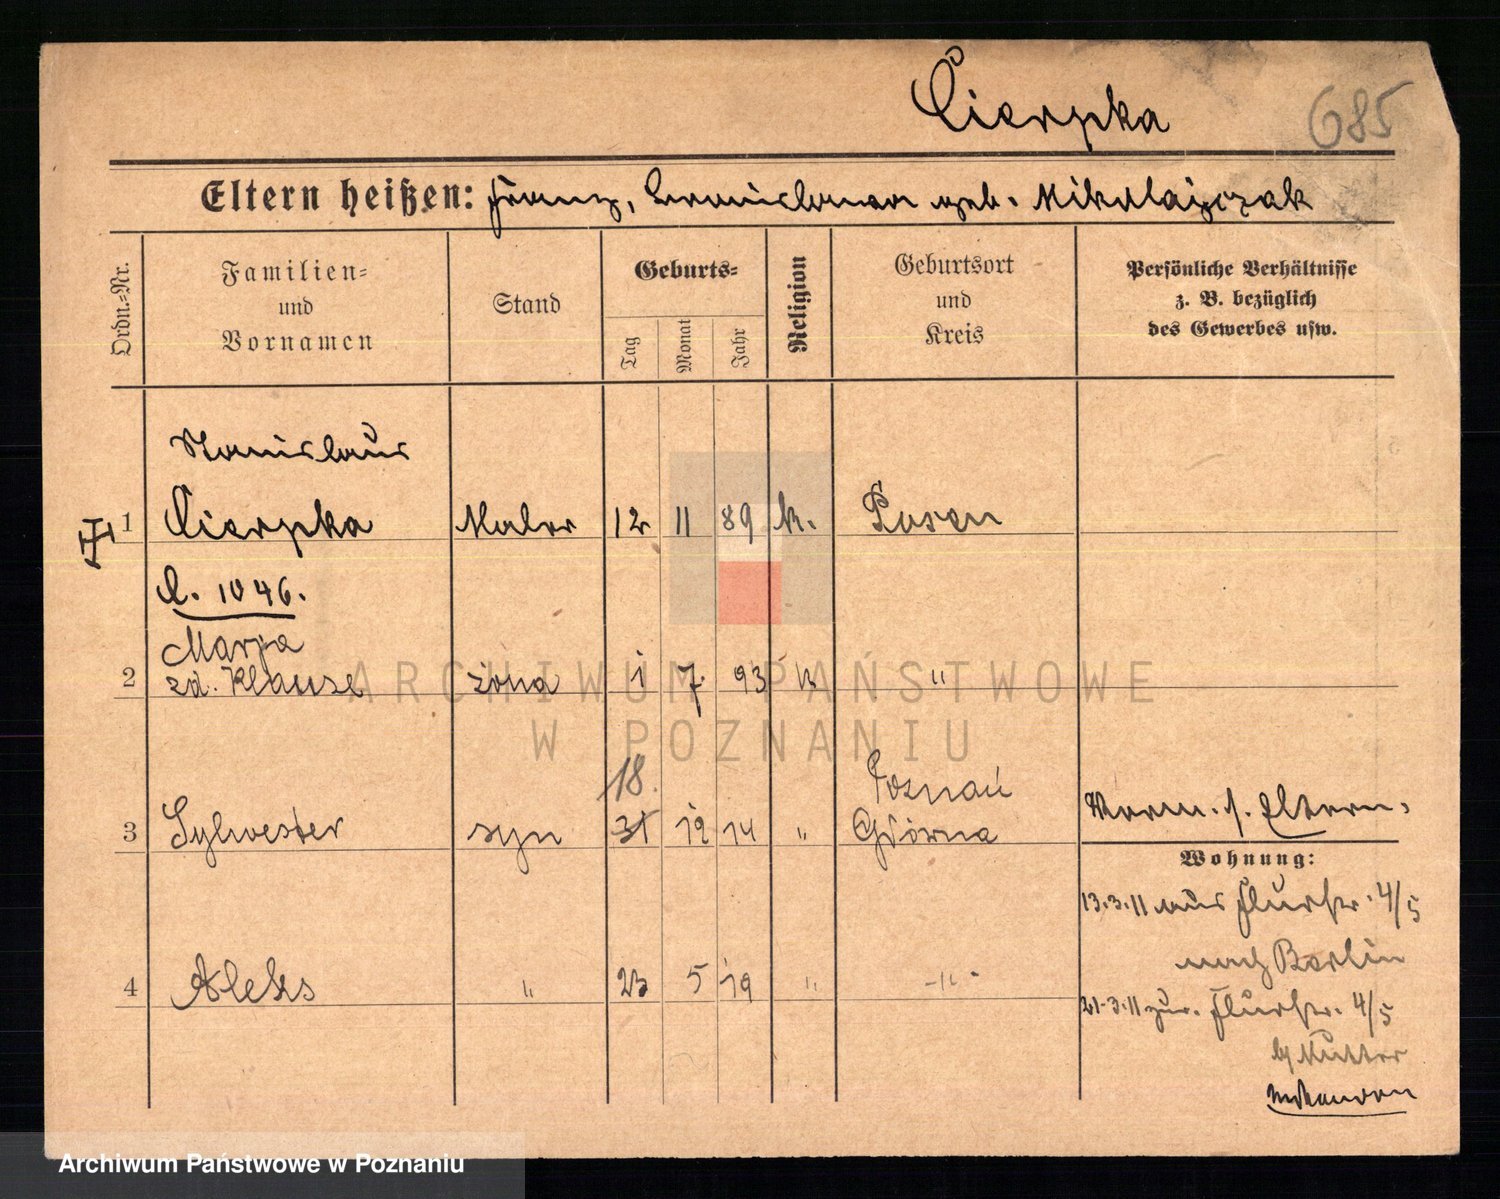 Cierpka
685
Eltern heißen: Franz, Bronislawa geb. Mikolajczak
Ordn.-Nr.
Familien-
und
Vornamen
Stand
Geburts-
Tag
Monat
Jahr
Religion
Geburtsort
und
Kreis
Persönliche Verhältnisse
z. B. bezüglich
des Gewerbes usw.
Stanislaus
1 Cierpka Maler 12 11 89 k. Posen
C. 1046.
Marja
2 zd. Klause żona 1 7. 93 k "
18.
Poznań
3 Sylwester syn 31 12 14 " Główna
Vorm. s. Eltern.
Wohnung:
13.3.11 aus Flurstr. 4/5
nach Berlin
4 Aleks " 23 5 19 " -"-
21.3.11 zur. Flurstr. 4/5
b/ Mutter
ARCHIWUM PAŃSTWOWE
W POZNANIU
Archiwum Państwowe w Poznaniu